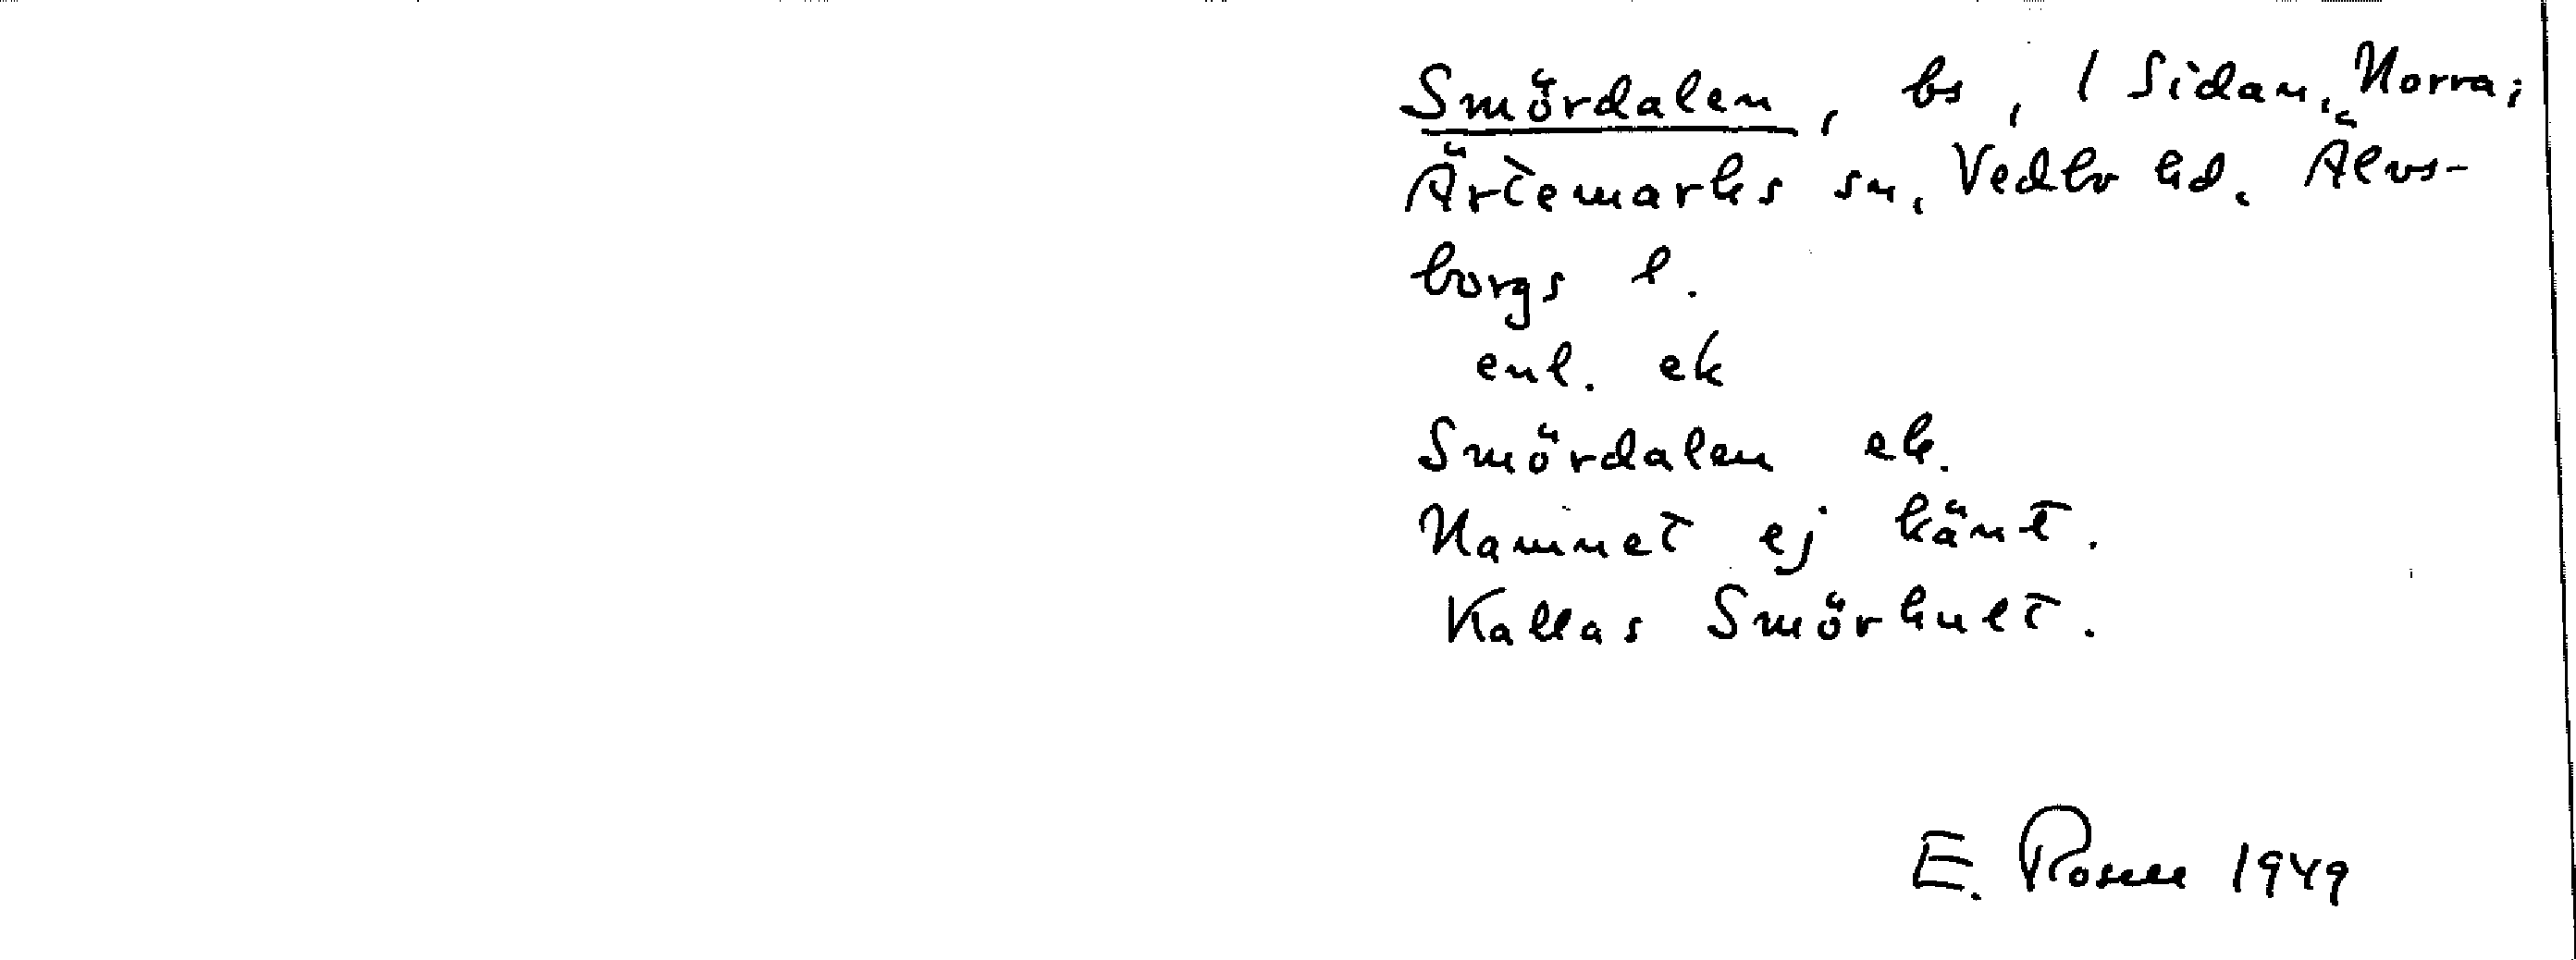 Smördalen, bs, / Sidan, Norra;
Ärtemarks sn, Vedbo hd. Älvs-
borgs l.
enl. ek
Smördalen ek.
Namnet ej känt.
Kallas Smörhult.
E. Rosell 1949